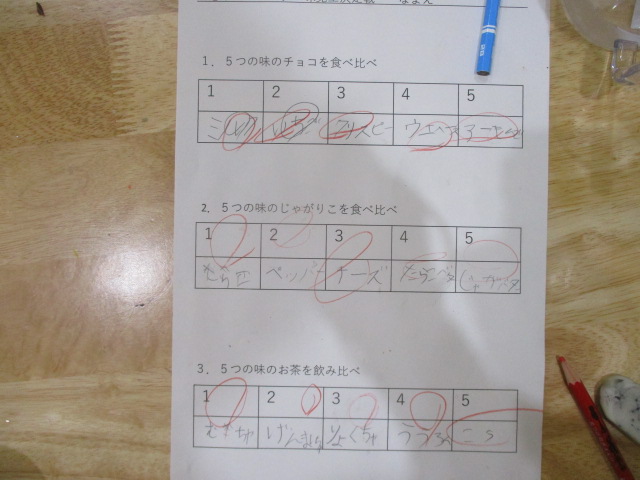 1．５つの味のチョコを食べ比べ
1 2 3 4 5
ミルク いちご クリスピー ウエハース アーモンド
2．５つの味のじゃがりこを食べ比べ
1 2 3 4 5
ペッパー チーズ たらバタ じゃがバタ
3．５つの味のお茶を飲み比べ
1 2 3 4 5
むぎちゃ げんまい りょくちゃ